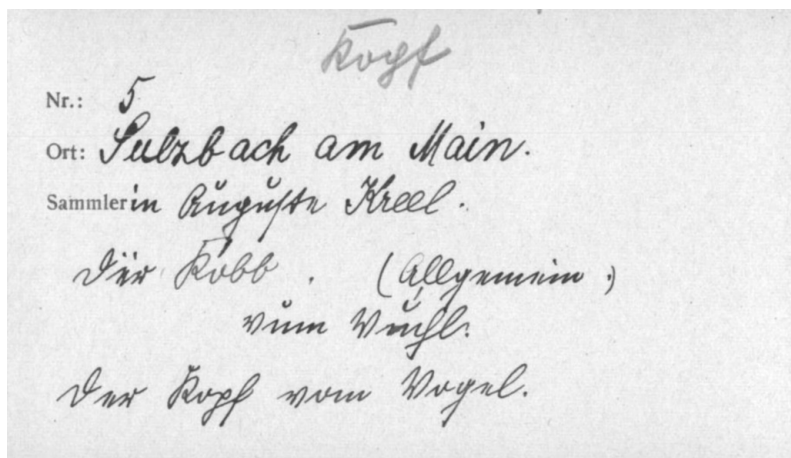 Kopf
Nr.: 5
Ort: Sulzbach am Main.
Sammlerin Auguste Kreel.
Där Kobb. (Allgemein.)
vum Vuchl.
Der Kopf vom Vogel.